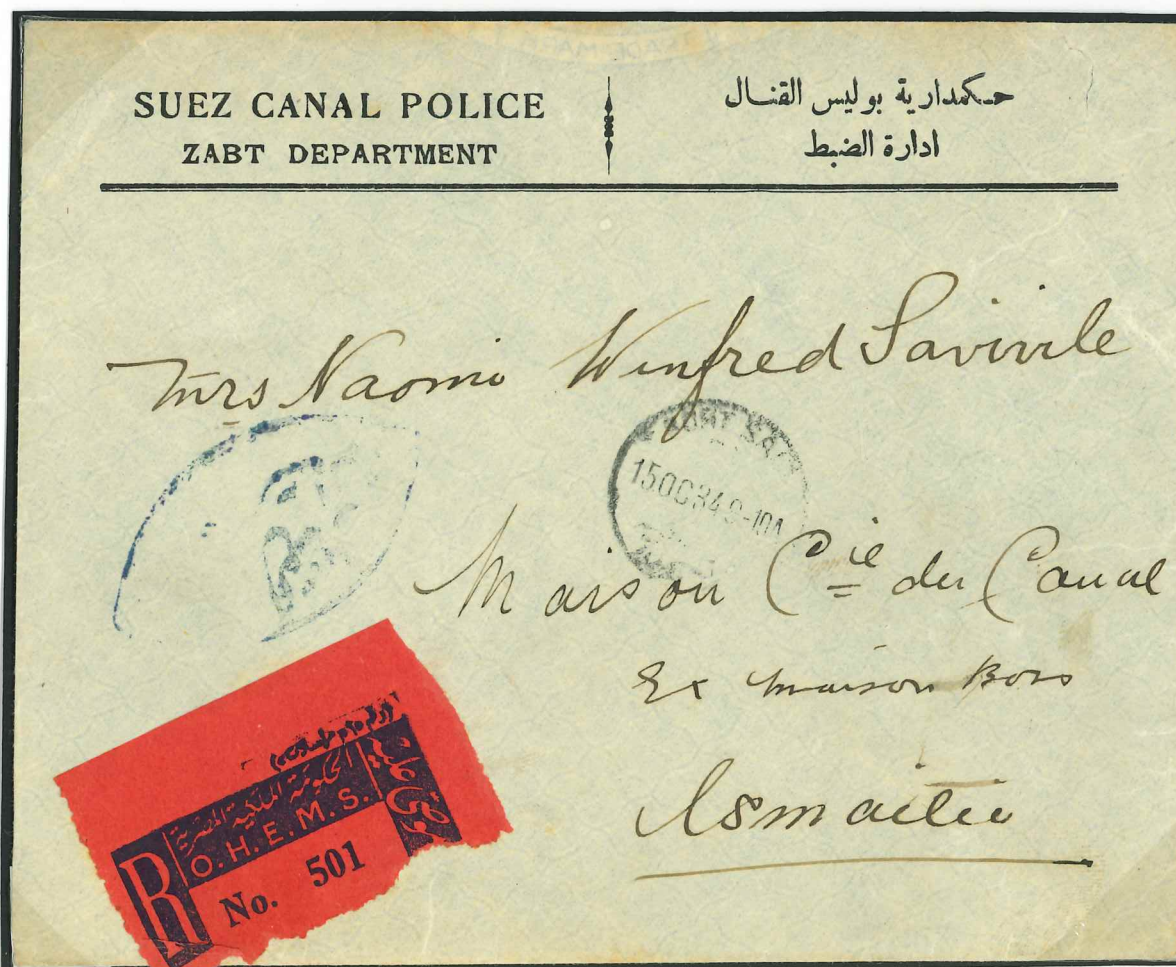 SUEZ CANAL POLICE
ZABT DEPARTMENT
حكمدارية بوليس القنال
ادارة الضبط
Mrs Naomi Winfred Savivile
PORT SAI
15 OC 34 9-10A
Maison Cie du Canal
Ex Maison Bors
Ismailia
الحكومة الملكية المصرية
O.H.E.M.S.
R
No. 501